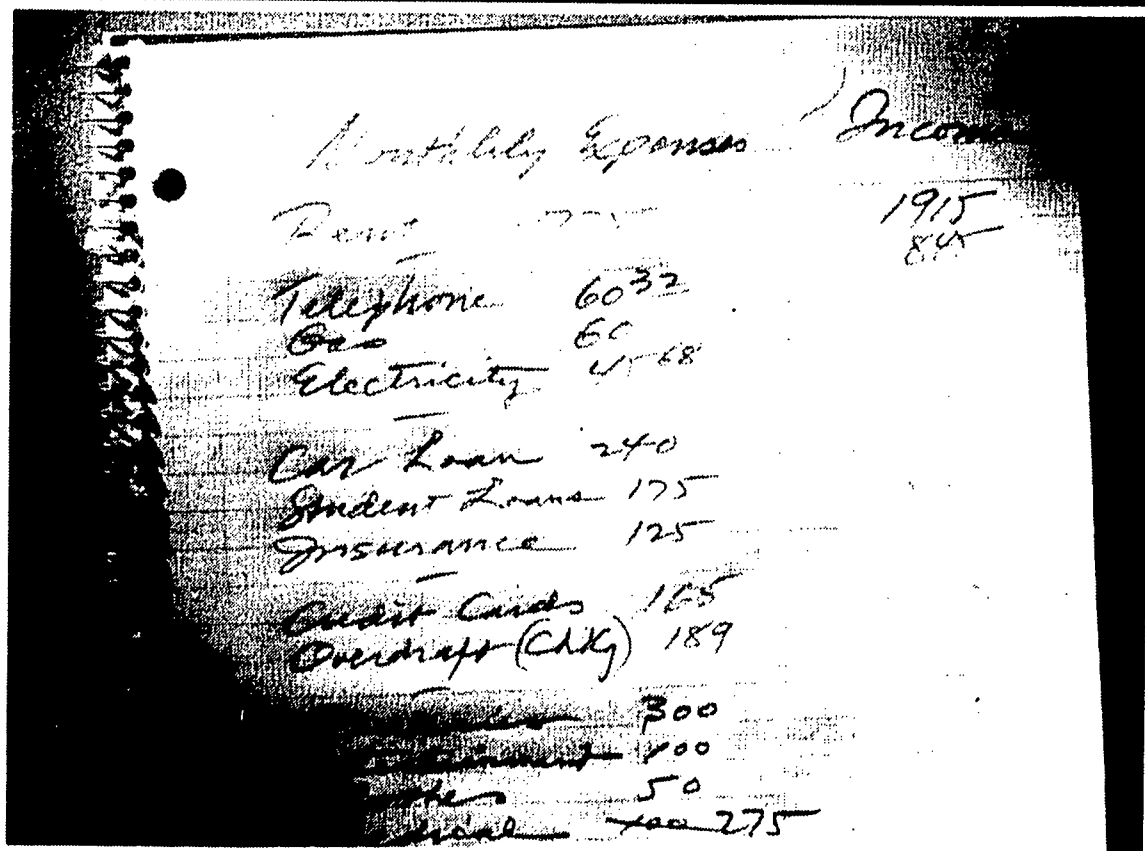 Monthly Expenses Income
Rent 1915
845
Telephone 60 32
Gas 60
Electricity 45 68
Car Loan 240
Student Loans 175
Insurance 125
Credit Cards 165
Overdraft (Chkg) 189
300
tainment 100
50
275